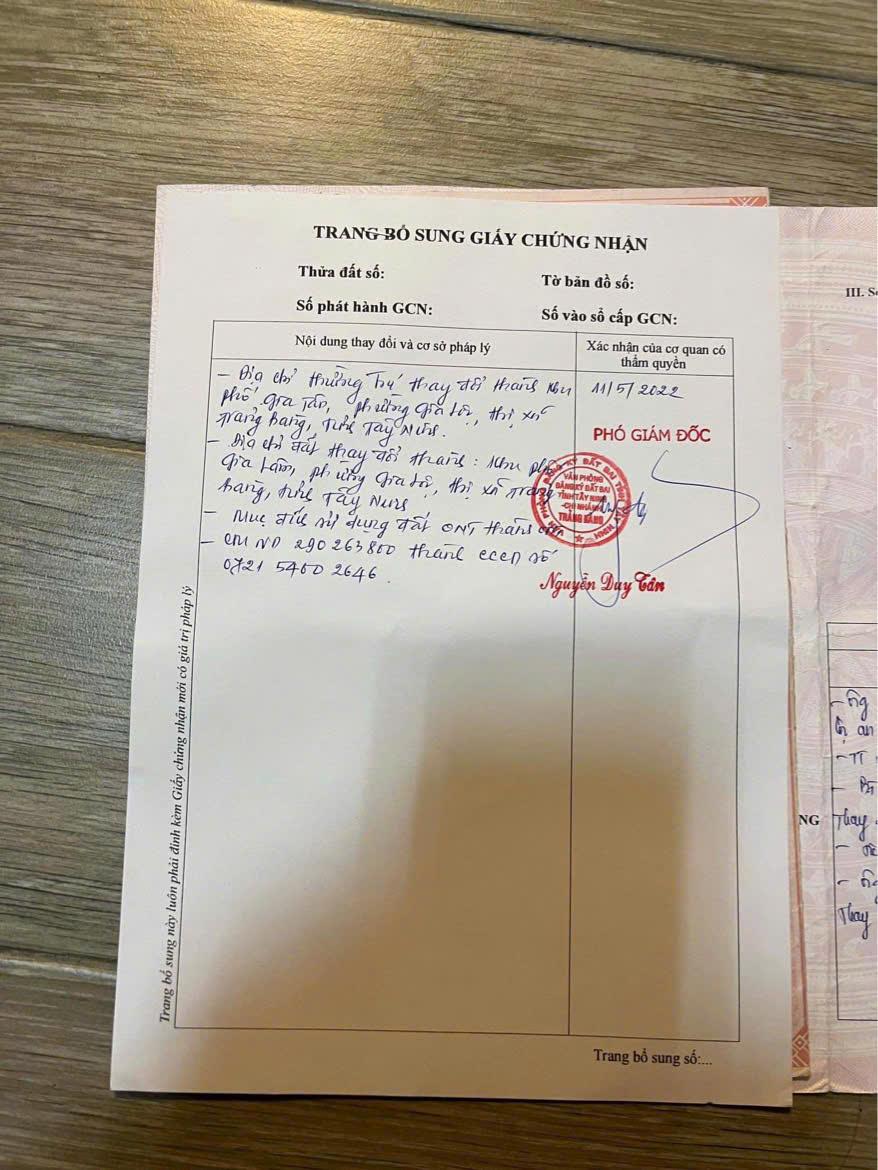 TRANG BỔ SUNG GIẤY CHỨNG NHẬN
Thửa đất số:
Tờ bản đồ số:
Số phát hành GCN:
Số vào sổ cấp GCN:
Nội dung thay đổi và cơ sở pháp lý
Xác nhận của cơ quan có
thẩm quyền
- Địa chỉ thường trú thay đổi thành khu
phố Gia Tân, phường Gia Lộc, thị xã
Trảng Bàng, tỉnh Tây Ninh.
- Địa chỉ đất thay đổi thành: Khu phố
Gia Lâm, phường Gia Lộc, thị xã Trảng
Bàng, tỉnh Tây Ninh
- Mục đích sử dụng đất ONT thành
- CMND 290263800 thành CCCD số
0721 5400 2646.
11/5/2022
PHÓ GIÁM ĐỐC
VĂN PHÒNG
ĐĂNG KÝ ĐẤT ĐAI
TỈNH TÂY NINH
CHI NHÁNH
TRẢNG BÀNG
Nguyễn Duy Tân
Trang bổ sung này luôn phải đính kèm Giấy chứng nhận mới có giá trị pháp lý
Trang bổ sung số:...
III. S
NG
Thay
Thay